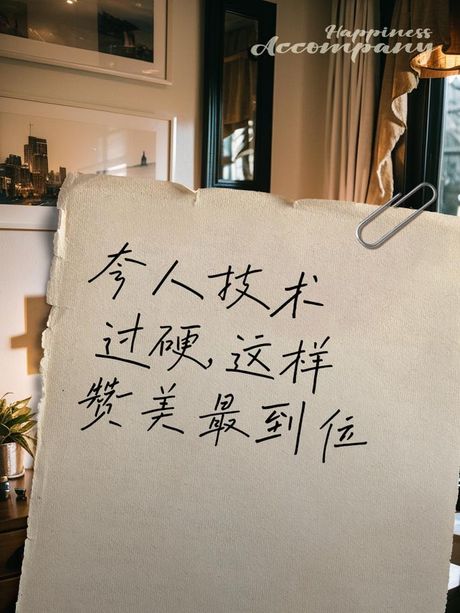 Happiness
Accompany
夸人技术
过硬,这样
赞美最到位